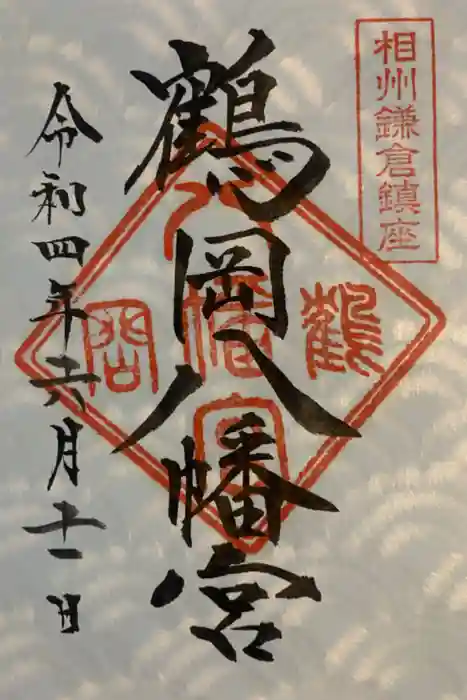 相州鎌倉鎮座
鶴岡八幡宮
鶴岡八幡宮
令和四年六月十一日